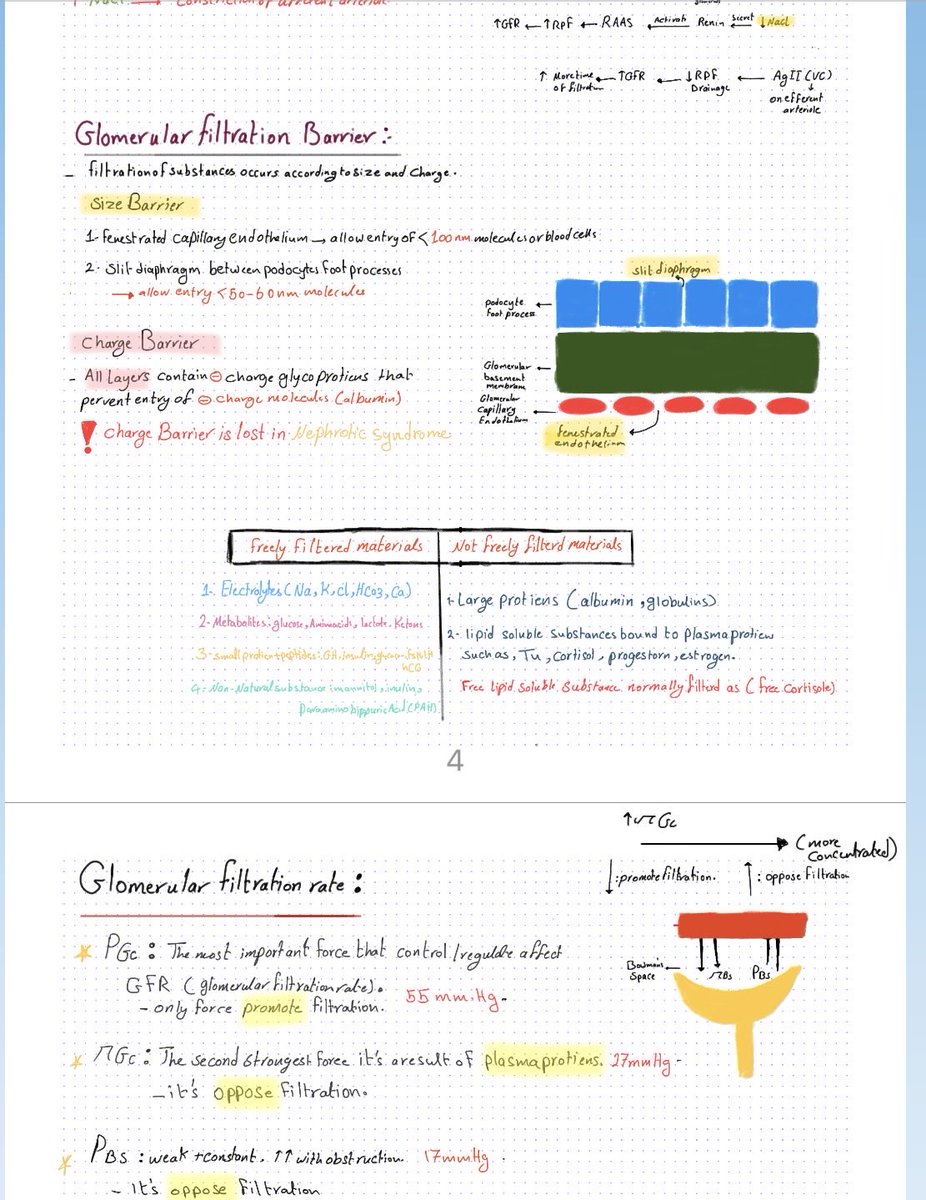 ↑GFR ← ↑RPF ← RAAS ←Activate Renin ←Secret ↓Nacl
↑ More time of filtration ← ↑GFR ← ↓RPF Drainage ← AgII (VC)
↓
on efferent
arteriole
Glomerular filtration Barrier :-
- filtration of substances occurs according to size and charge.
Size Barrier
1- fenestrated capillary endothelium → allow entry of < 100 nm molecules or blood cells
2- Slit diaphragm between podocytes foot processes
→ allow entry < 50-60nm molecules
slit diaphragm
podocyte
foot process
Glomerular
basement
membrane
Glomerular
Capillary
Endothelium
fenestrated
endothelium
Charge Barrier
- All layers contain ⊖ charge glycoprotiens that
pervent entry of ⊖ charge molecules (albumin)
! Charge Barrier is lost in Nephrotic syndrome
freely filtered materials
Not freely filterd materials
1- Electrolytes (Na, K, cl, HCo3, Ca)
2- Metabolites: glucose, Aminoacids, lactate, Ketons
3- small protien + peptides: GH, insulin,
HCG
4- Non-Natural substance: mannitol, inulin,
Para amino hippuric Acid (PAH)
1- Large protiens (albumin, globulins)
2- lipid soluble substances bound to plasma protien
such as, T4, cortisol, progestorn, estrogen.
Free lipid soluble substance normally filterd as (free cortisole)
4
↑πGc
(more
concentrated)
↓: promote filtration.
↑: oppose filtration
Glomerular filtration rate :
Bowman's
Space
πBs PBs
PGc : The most important force that control / regulate affect
GFR (glomerular filtration rate). 55 mm.Hg -
- only force promote filtration.
πGc : The second strongest force it's a result of plasma protiens. 27mmHg -
- it's oppose filtration.
PBs : weak + constant. ↑↑ with obstruction. 17mmHg.
- It's oppose filtration